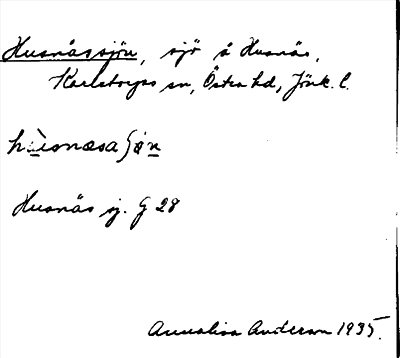 Husnässjön, sjö å Husnäs,
Karlstorps sn, Östra hd, Jönk. l.
Husnäs sj. G 28
Annalisa Anderson 1935.